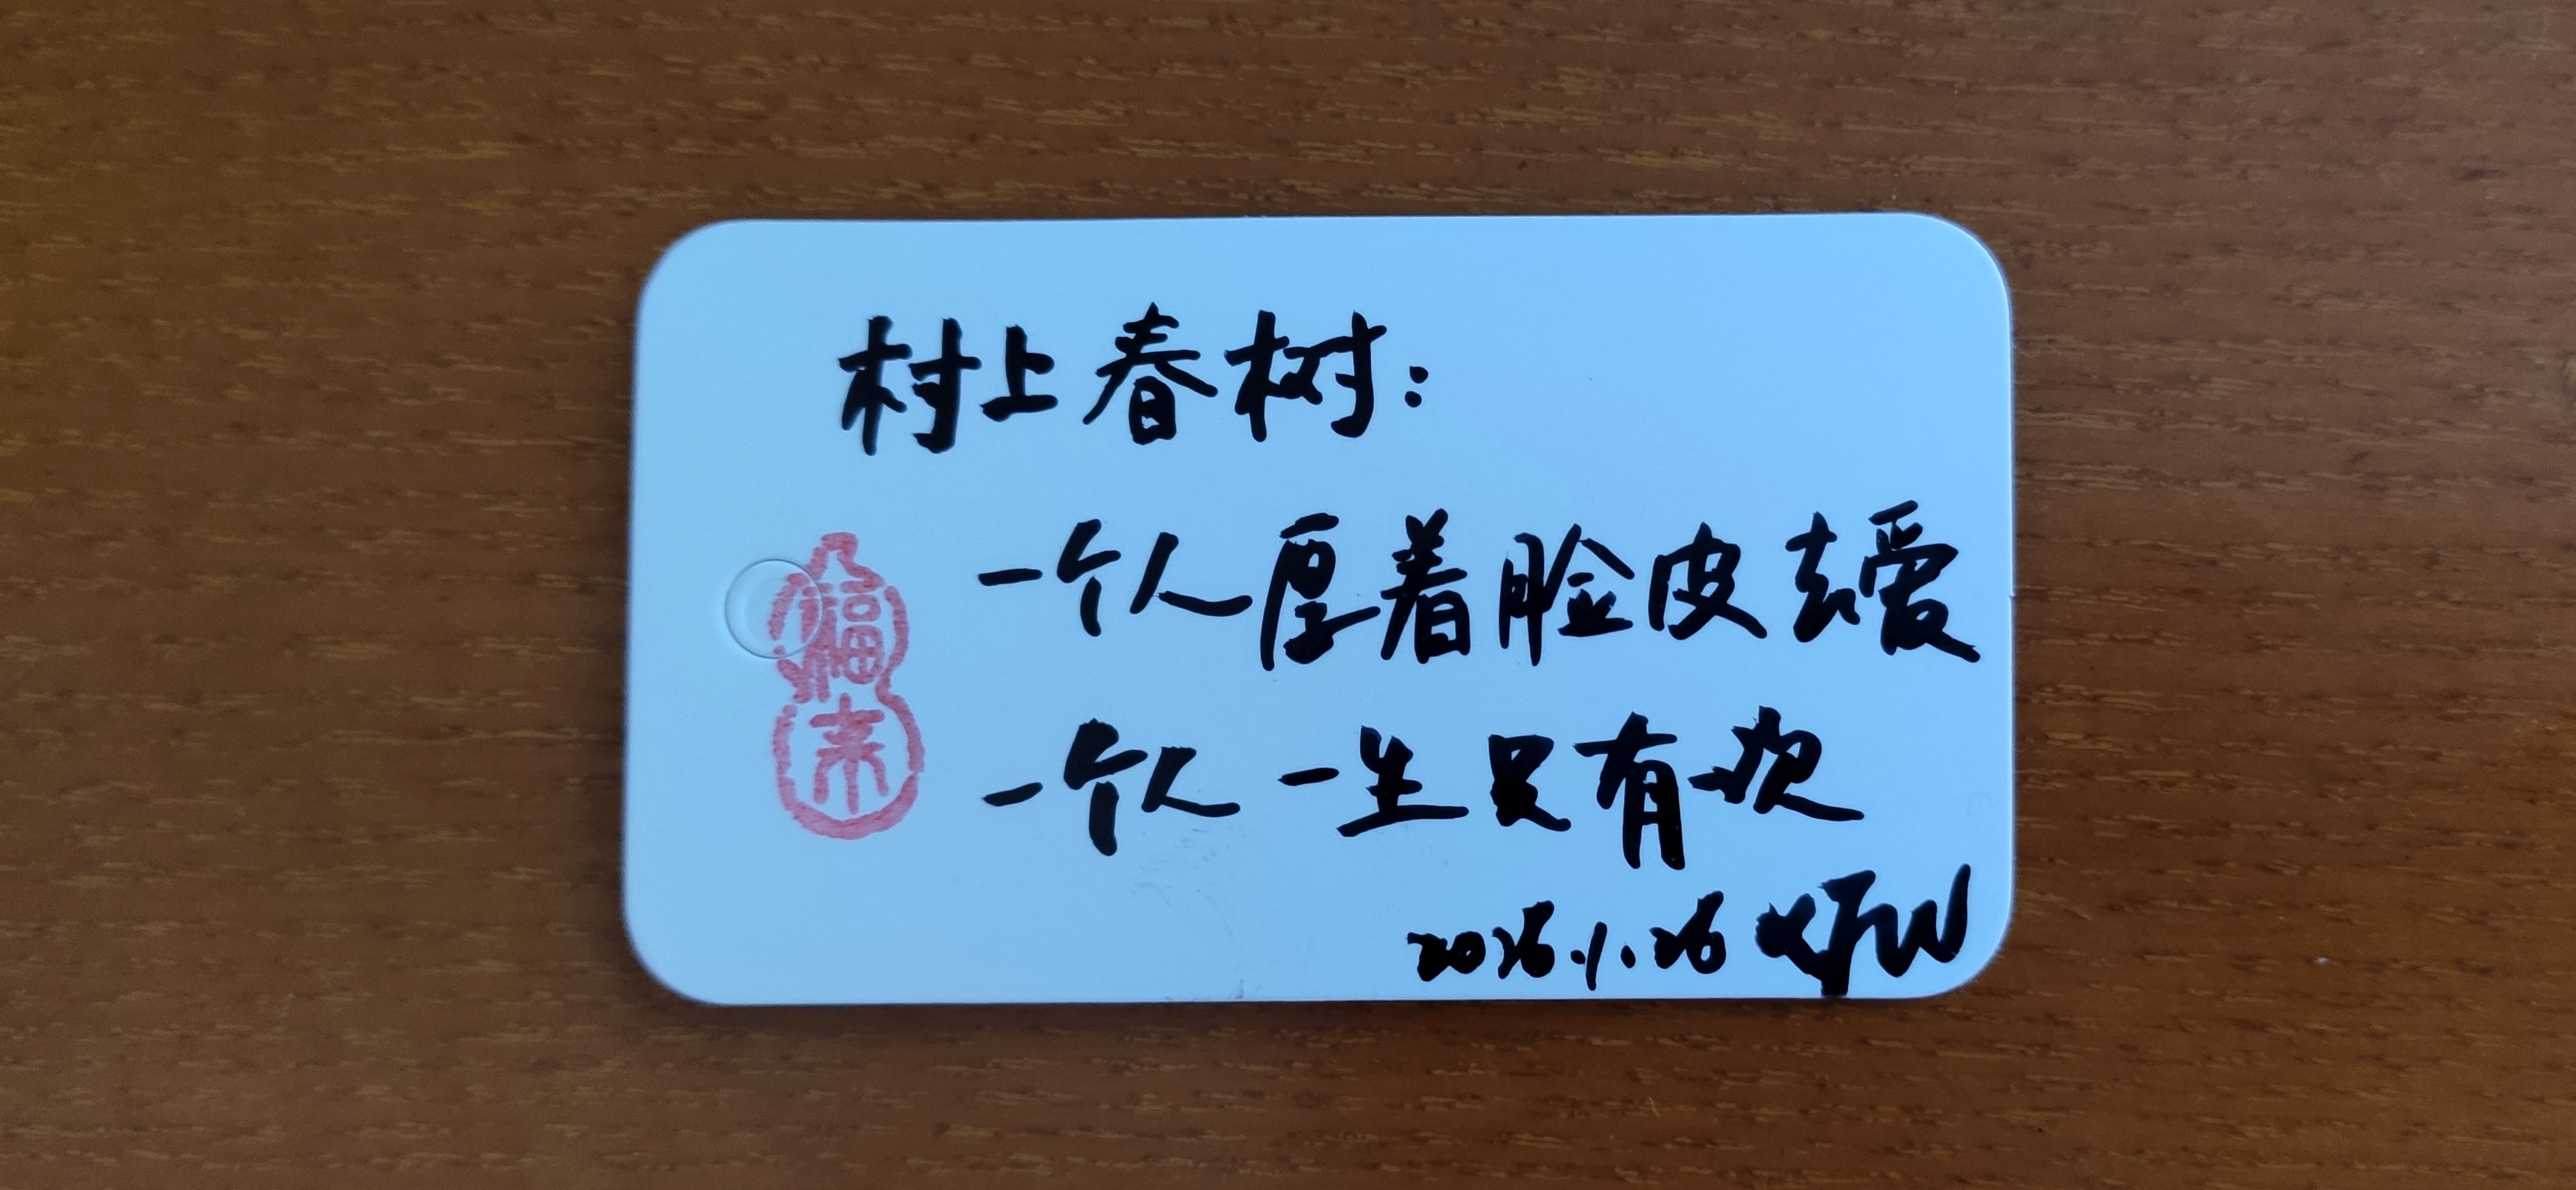 村上春树:
一个人厚着脸皮去爱
一个人一生只有次
2026.1.26 XJW
福来